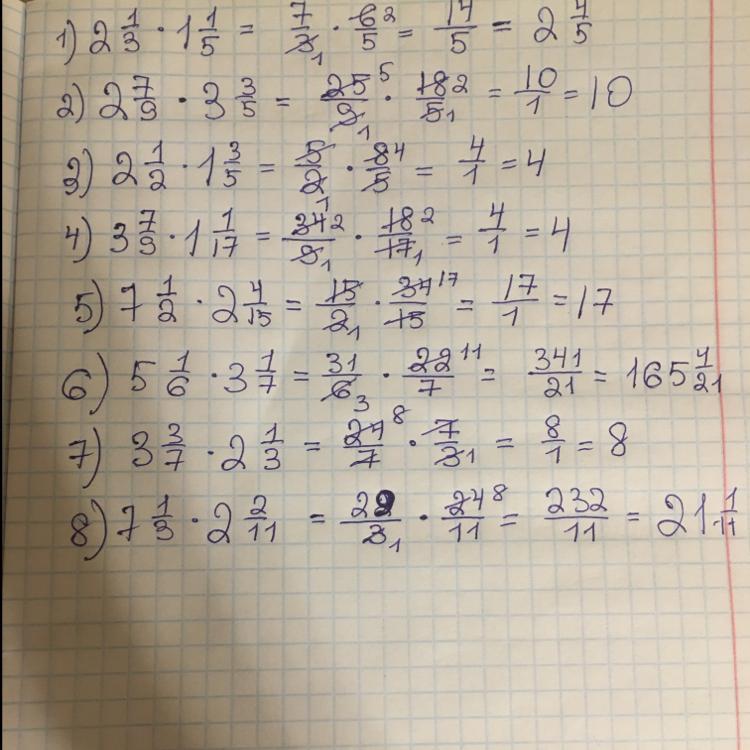 1) 2 1/3 · 1 1/5 = 7/3 1 · 6 2/5 = 14/5 = 2 4/5
2) 2 7/9 · 3 3/5 = 25 5/9 1 · 18 2/5 1 = 10/1 = 10
3) 2 1/2 · 1 3/5 = 5/2 1 · 8 4/5 = 4/1 = 4
4) 3 7/9 · 1 1/17 = 34 2/9 1 · 18 2/17 1 = 4/1 = 4
5) 7 1/2 · 2 4/15 = 15/2 1 · 34 17/15 = 17/1 = 17
6) 5 1/6 · 3 1/7 = 31/6 3 · 22 11/7 = 341/21 = 165 1/21
7) 3 3/7 · 2 1/3 = 24 8/7 · 7/3 1 = 8/1 = 8
8) 7 1/3 · 2 2/11 = 22/3 1 · 24 8/11 = 232/11 = 21 1/11